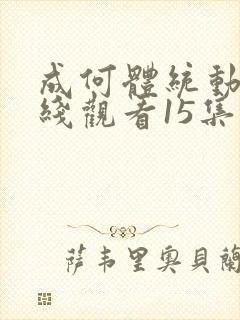 成何體統動
綫觀看15集
薩韦里奥貝蘭